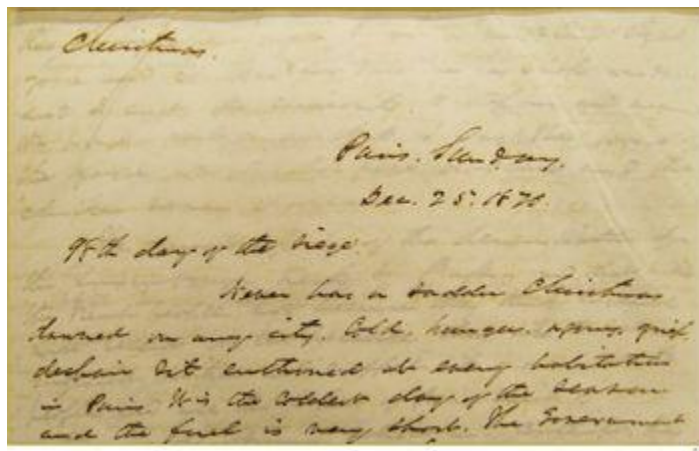 Christmas.
Paris. Sunday.
Dec. 25. 1870.
98th day of the siege.
Never has a sadder Christmas
dawned on any city. Cold, hunger, agony, grief
despair sit enthroned at every habitation
in Paris. It is the coldest day of the season
and the fuel is very short. The Government